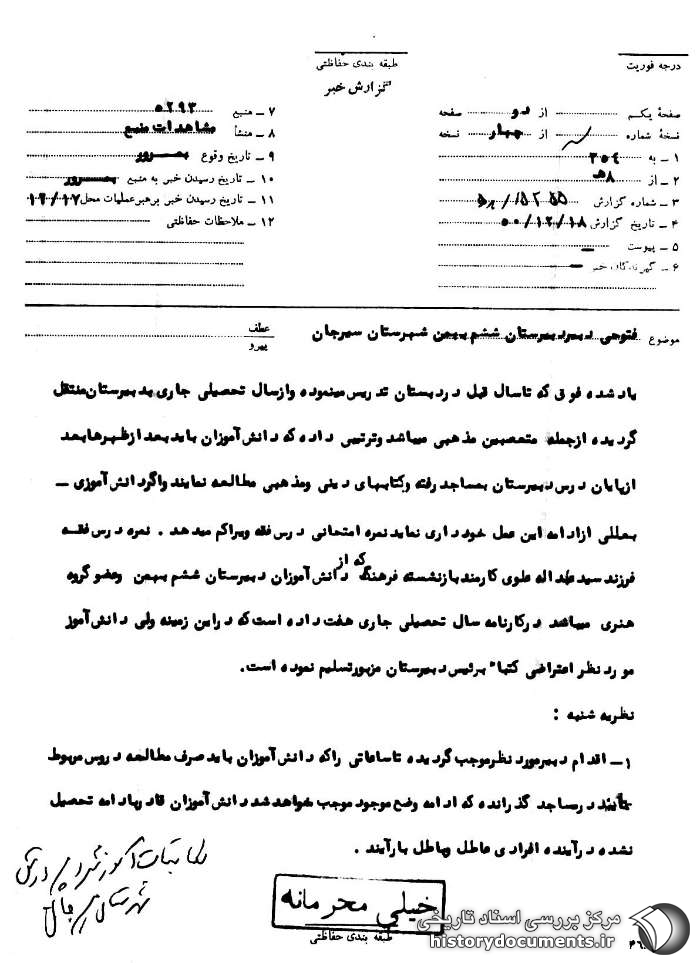 درجه فوریت
طبقه بندی حفاظتی
گزارش خبر
صفحهٔ یکم از دو صفحه
نسخهٔ شماره از چهار نسخه
۱ ـ به ۳۵۴
۲ ـ از ۸ه‍
۳ ـ شماره گزارش
۴ ـ تاریخ گزارش ۵۰/۱۲/۱۸
۵ ـ پیوست ـ
۶ ـ گیرندگان خبر ـ
۷ ـ منبع ۵۲۹۳
۸ ـ منشأ مشاهدات منبع
۹ ـ تاریخ وقوع بمرور
۱۰ ـ تاریخ رسیدن خبر به منبع بمرور
۱۱ ـ تاریخ رسیدن خبر برهبر عملیات محل ۱۲/۱۷
۱۲ ـ ملاحظات حفاظتی
موضوع فتوحی دبیر دبیرستان ششم بهمن شهرستان سیرجان
عطف
پیرو
یاد شده فوق که تاسال قبل در دبستان تدریس مینموده واز سال تحصیلی جاری بدبیرستان منتقل
گردیده از جمله متعصبین مذهبی میباشد وترتیبی داده که دانش آموزان باید بعد از ظهرها بعد
از پایان درس دبیرستان بمساجد رفته وکتابهای دینی ومذهبی مطالعه نمایند واگر دانش آموزی ـ
بعللی از ادامه این عمل خودداری نماید نمره امتحانی درس فقه ویراکم میدهد . نمره درس فقه
فرزند سید عبداله علوی کارمند بازنشسته فرهنگ که از دانش آموزان دبیرستان ششم بهمن وعضو گروه
هنری میباشد در کارنامه سال تحصیلی جاری هفت داده است که در این زمینه ولی دانش آموز
مورد نظر اعتراضی کتبا" برئیس دبیرستان مزبور تسلیم نموده است.
نظریه شنبه :
۱ـ اقدام دبیر مورد نظر موجب گردیده تا ساعاتی را که دانش آموزان باید صرف مطالعه دروس مربوط
در مساجد گذرانده که ادامه وضع موجود موجب خواهد شد دانش آموزان قادر بادامه تحصیل
نشده در آینده افرادی عاطل وباطل بار آیند .
خیلی محرمانه
طبقه بندی حفاظتی
مرکز بررسی اسناد تاریخی
historydocuments.ir